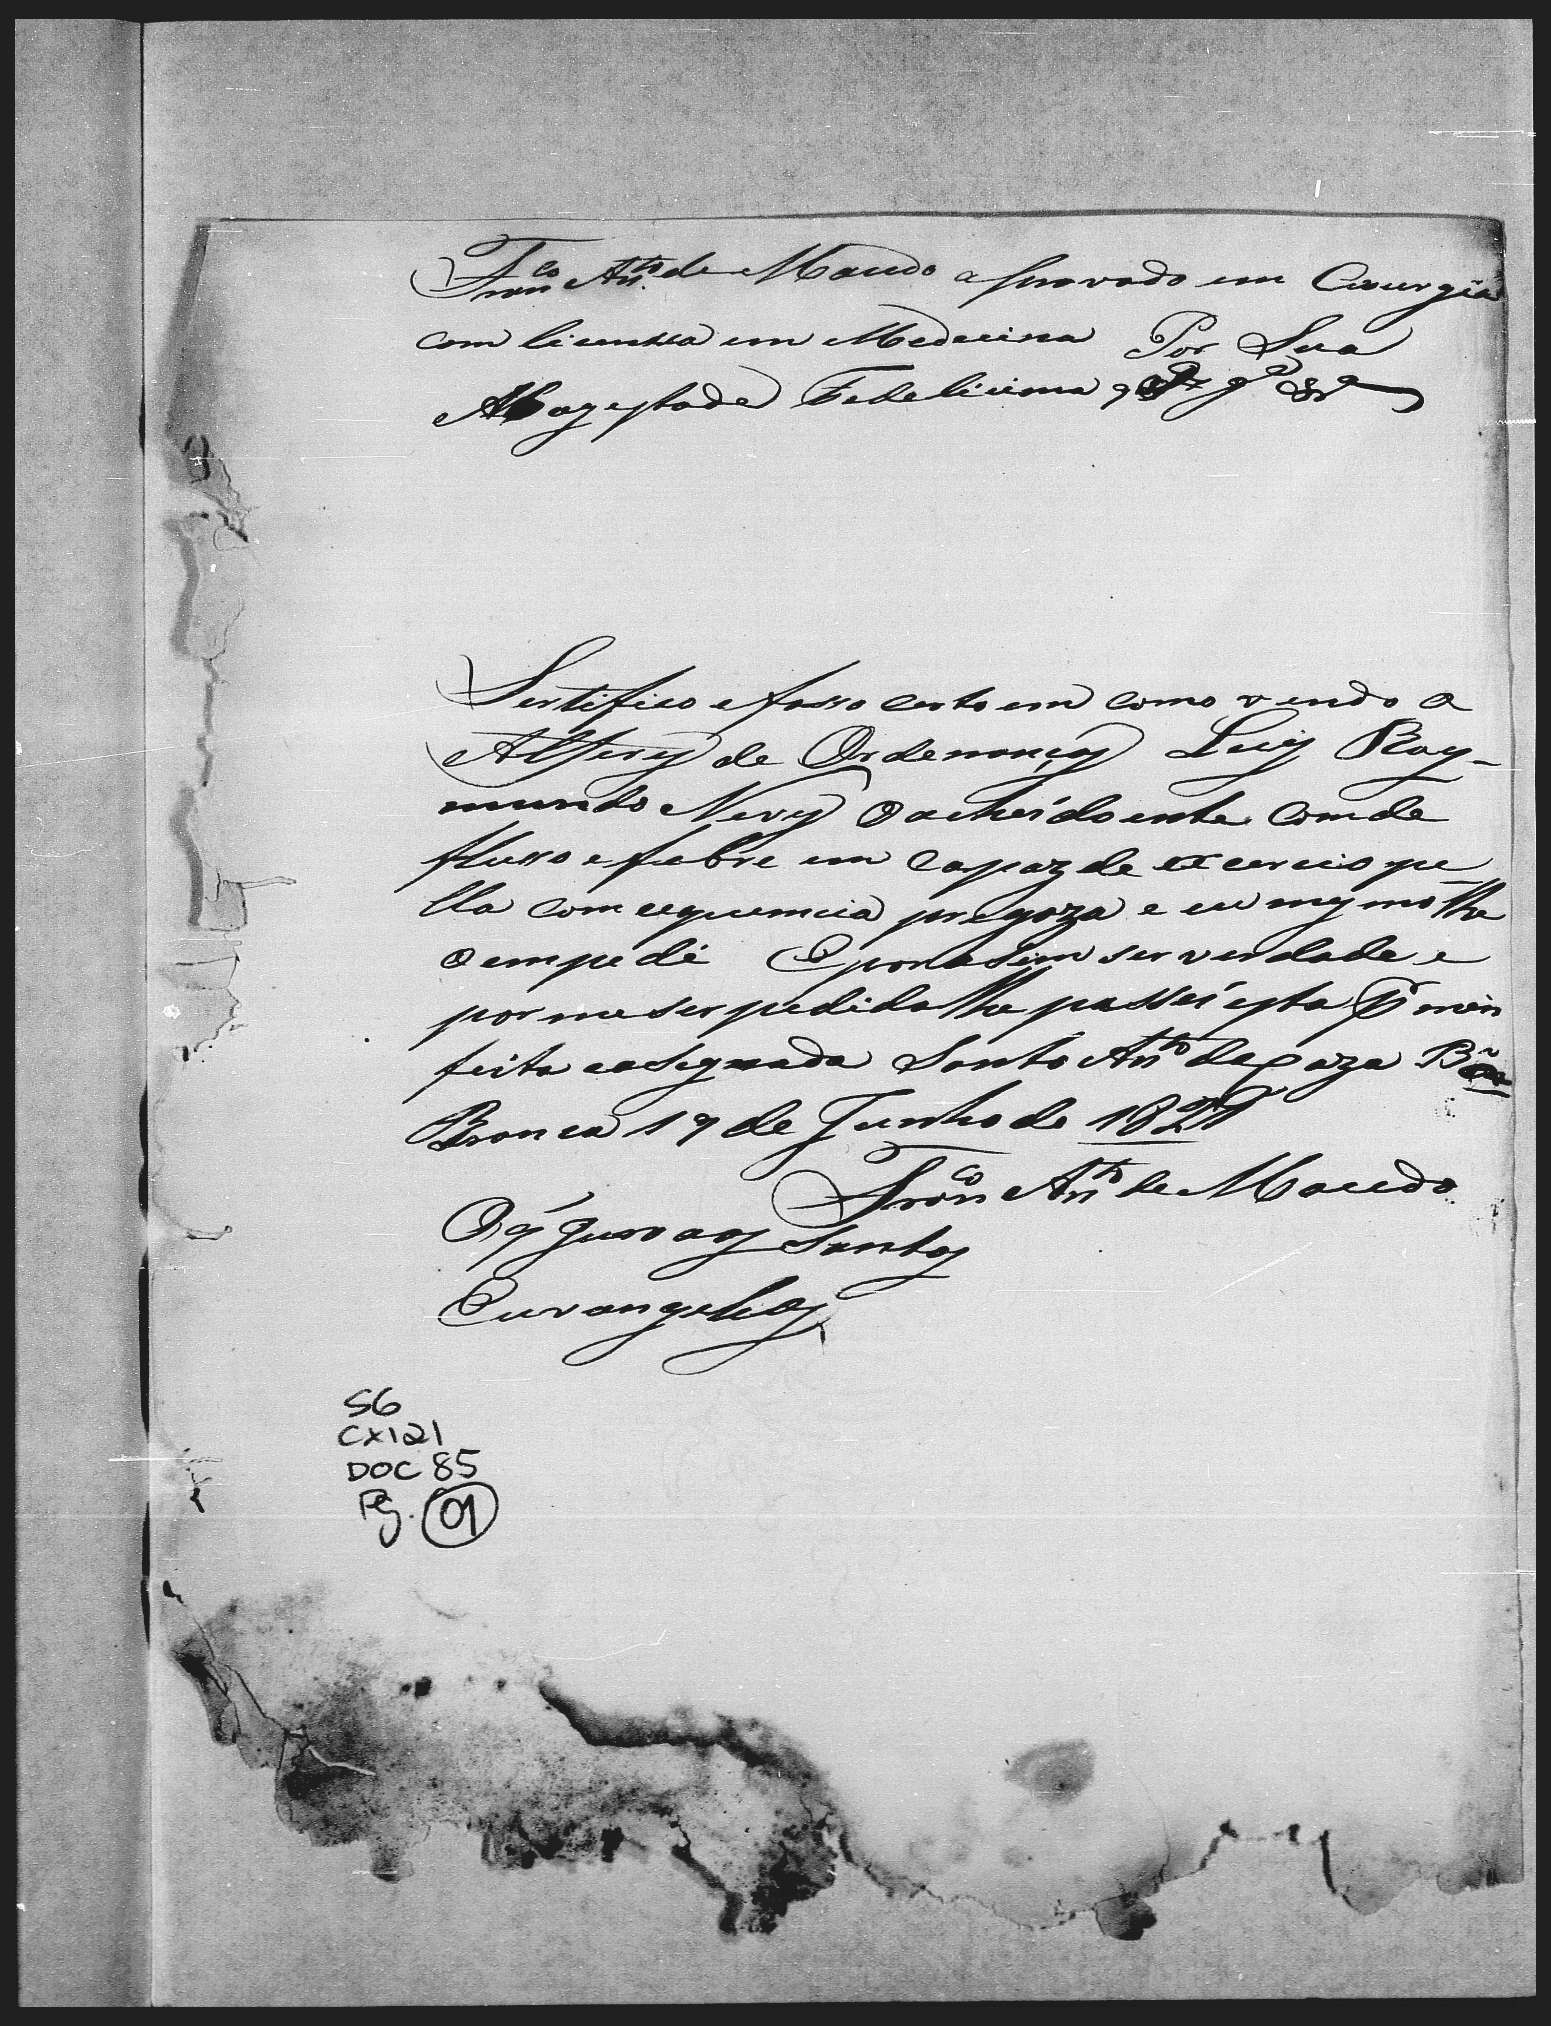 Fran.co An.to de Macedo aprovado em Cirurgia
com licenssa em Medecina Por Sua
Magestade Fedelicima q D.s g.de &.a
Sertifico e fasso certo em como vendo a
Alferes de Ordenonças Luis Ray-
mundo Neves o achei doente com de
fluxo e febre em capaz de excercio pe
lla comcequencia
o empedi E por asim ser verdade e
por me ser pedida lhe passei esta p.r mim
feita e asignada Santo An.to da caza
Branca 19 de Junho de 1821
Fran.co An.to de Macedo
O q̃ Juro aos Santos
Euvangelhos
S6
CX121
DOC 85
Pg. 01